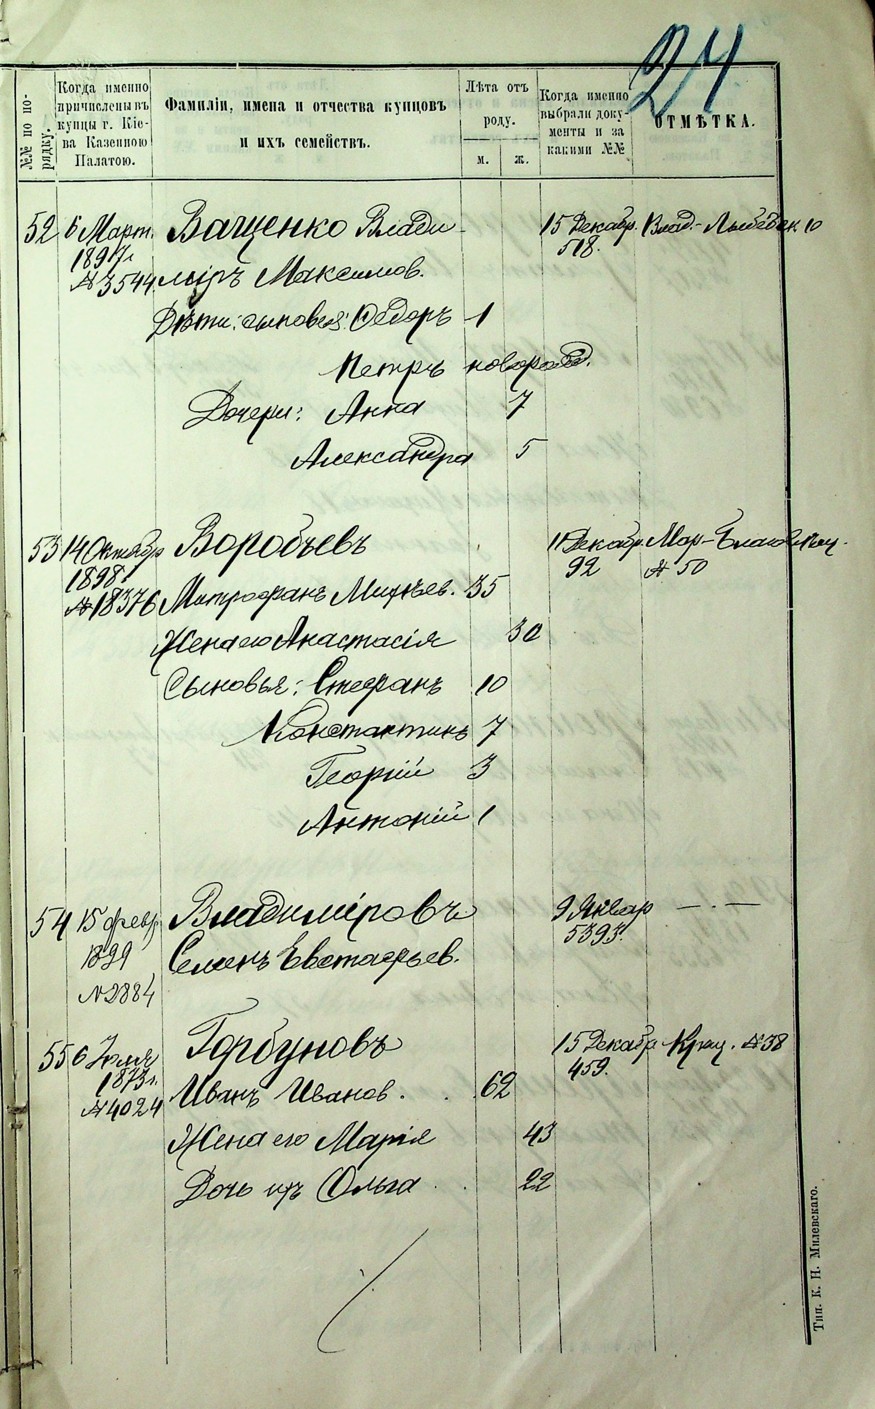 24
№№ по по-
рядку.
Когда именно
причислены въ
купцы г. Кіе-
ва Казенною
Палатою.
Фамиліи, имена и отчества купцовъ
и ихъ семействъ.
Лѣта отъ
роду.
м. ж.
Когда именно
выбрали доку-
менты и за
какими №№
ОТМѢТКА.
52 6 Март. Ващенко Влади- 15 Декабр. Влад.-Лыбедск. 10
1897г. 518.
№ 3544 міръ Максимов.
Дѣти: сыновья: Ѳедоръ 1
Петръ новорожд.
Дочери: Анна 7
Александра 5
53 14 Октябр Воробьевъ 11 Декабр. Мар-Благовѣщ.
1898 92 № 50
№ 18376 Митрофанъ Михѣев. 35
Жена его Анастасія 30
Сыновья: Стефанъ 10
Константинъ 7
Георгій 3
Антоній 1
54 15 февр Владиміровъ 9 Январ — . —
1899 Семенъ Евстафьев. 5393.
№ 2884
55 6 Іюля Горбуновъ 15 Декабр. Крещ. № 38
1873г. 459.
№ 4024 Иванъ Иванов. . . 62
Жена его Марія 43
Дочь ихъ Ольга . . 22
Тип. К. Н. Милевскаго.